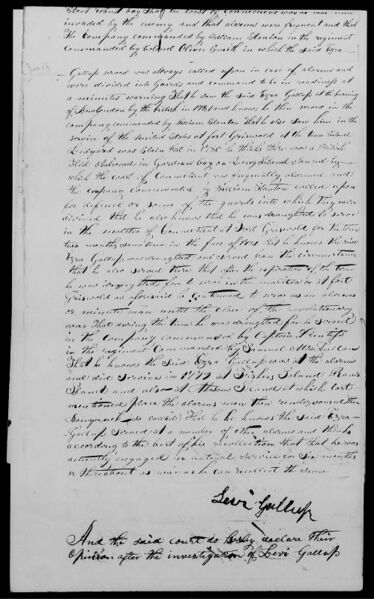 that the coast of Connecticut was
invaded by the enemy and that alarms were frequent and that
the Company commanded by William Stanton in the regiment
commanded by Colonel Oliver Smith in which the said Ezra
Gallup served was always called upon in case of alarms and
were divided into guards and command to be in readiness at
a minutes warning That he saw the said Ezra Gallup at the burning
of New London by the British in 1781 and knows he then was in the
company commanded by William Stanton that he also saw him in the
service of the United States at fort Griswold at the time Colonel
Ledyard was Slain that in he thinks there was a British
fleet stationed in Gardners bay on Long Island Sound by
which the coast of Connecticut was frequently alarmed and
the company commanded by William Stanton called upon
for defence or some of the guards into which they were
divided that he also knows that he was draughted to serve
in the malitia of Connecticut at Fort Griswold for the term
two months sometime in the fore of 1781 that he knows the said
Ezra Gallup was draughted and served from the circumstance
that he also served there that after the expiration of the time
he was draughted for to serve in the malitia at fort
Griswold as aforesaid he continued to serve as an alarm
or minute man until the close of the revolutionary
war That during the time he was draughted for he served
in the company commanded by Captain
in the regiment commanded by Samuel McLellan
That he knows the said Ezra Gallup was at the alarms
and did service in 1779 at Fishers Island
and also at Island at which last
mentioned place the alarms men then rendezvoused the
as called That he knows the said Ezra
Gallup served at a number of other alarms and thinks
according to the best of his recollection that he was
actively engaged in actual service for six months
or thereabout as near as he can recollect the same
Levi Gallup
And the said court do hereby declare their
Opinion after the investigation of Levi Gallup